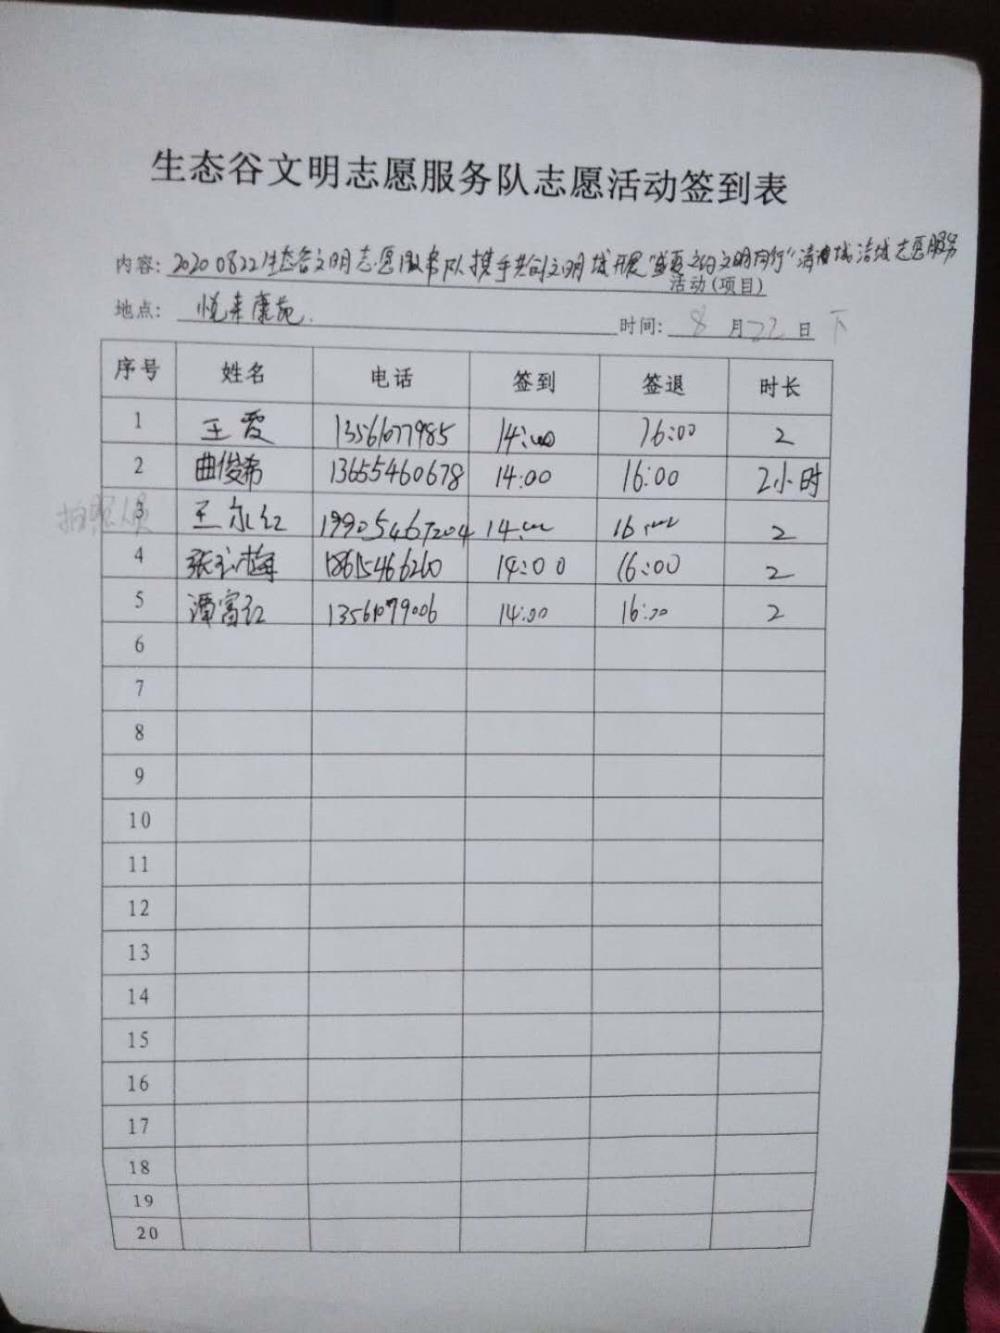 生态谷文明志愿服务队志愿活动签到表
内容: 20200822生态谷文明志愿服务队携手共创文明城开展"盛夏之约文明同行"清洁城志愿服务
活动(项目)
地点: 悦来康苑.
时间: 8月22日 下
序号 姓名 电话 签到 签退 时长
1 王爱 13561077985 14:00 16:00 2
2 曲俊希 13655460678 14:00 16:00 2小时
拍照人员
3 王永红 19905467204 14:00 16:00 2
4 张玉梅 18615466260 14:00 16:00 2
5 谭富红 13561079006 14:00 16:00 2
6
7
8
9
10
11
12
13
14
15
16
17
18
19
20